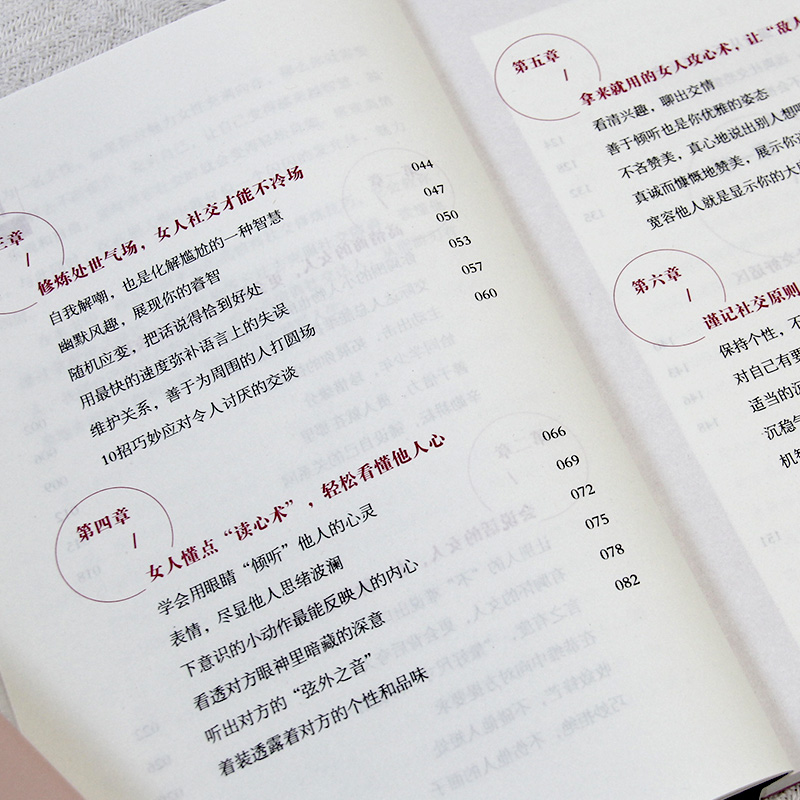 三章
修炼处世气场，女人社交才能不冷场
自我解嘲，也是化解尴尬的一种智慧 044
幽默风趣，展现你的睿智 047
随机应变，把话说得恰到好处 050
用最快的速度弥补语言上的失误 053
维护关系，善于为周围的人打圆场 057
10招巧妙应对令人讨厌的交谈 060
第四章
女人懂点“读心术”，轻松看懂他人心
学会用眼睛“倾听”他人的心灵 066
表情，尽显他人思绪波澜 069
下意识的小动作最能反映人的内心 072
看透对方眼神里暗藏的深意 075
听出对方的“弦外之音” 078
着装透露着对方的个性和品味 082
第五章
拿来就用的女人攻心术，让“敌人
看清兴趣，聊出交情
善于倾听也是你优雅的姿态
不吝赞美，真心地说出别人想
真诚而慷慨地赞美，展示你
宽容他人就是显示你的大
第六章
谨记社交原则
保持个性，不
对自己有要
适当的沉
沉稳
机智